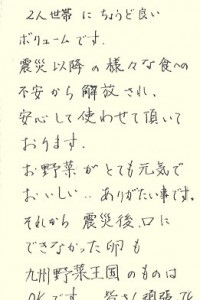 2人世帯にちょうど良い
ボリュームです。
震災以降の様々な食への
不安から解放され、
安心して使わせて頂いて
おります。
お野菜がとても元気で
おいしい‥ありがたい事です。
それから震災後、口に
できなかった卵も
九州野菜王国のものは
OKです。皆さん頑張